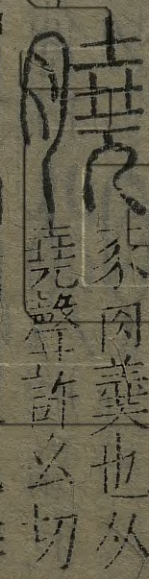 膮
豕肉羹也从
堯聲許幺切